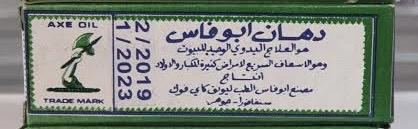 AXE OIL
TRADE MARK
2/2019
1/2023
دهان ابو فاس
هو العلاج اليدوي الوحيد للبيوت
وهو الاسعاف السريع لامراض كثيرة للكبار والاولاد
انتاج
مصنع ابو فاس الطب ليونق كاي فوك
سنغافورا - جوهر